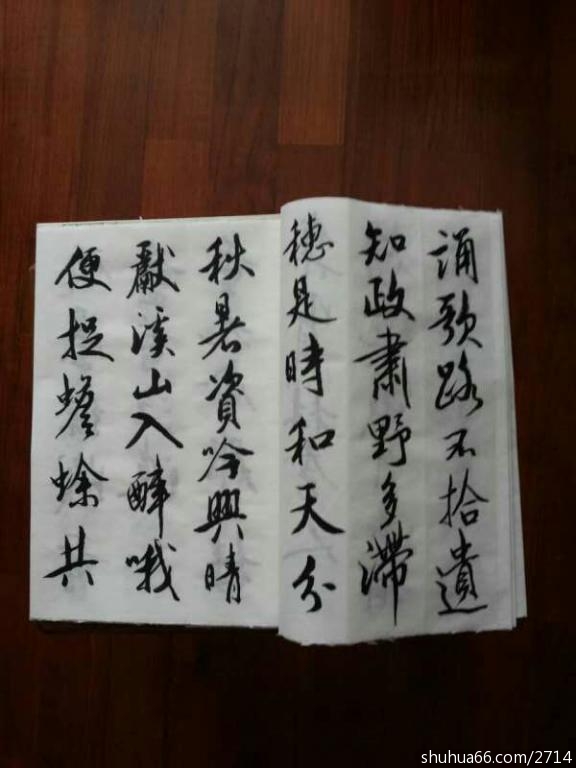 誦歌路不拾遺
知政肅野多滯
穗是時和天分
秋暑資吟興晴
獻溪山入醉哦
便捉蟾蜍共
shuhua66.com/2714